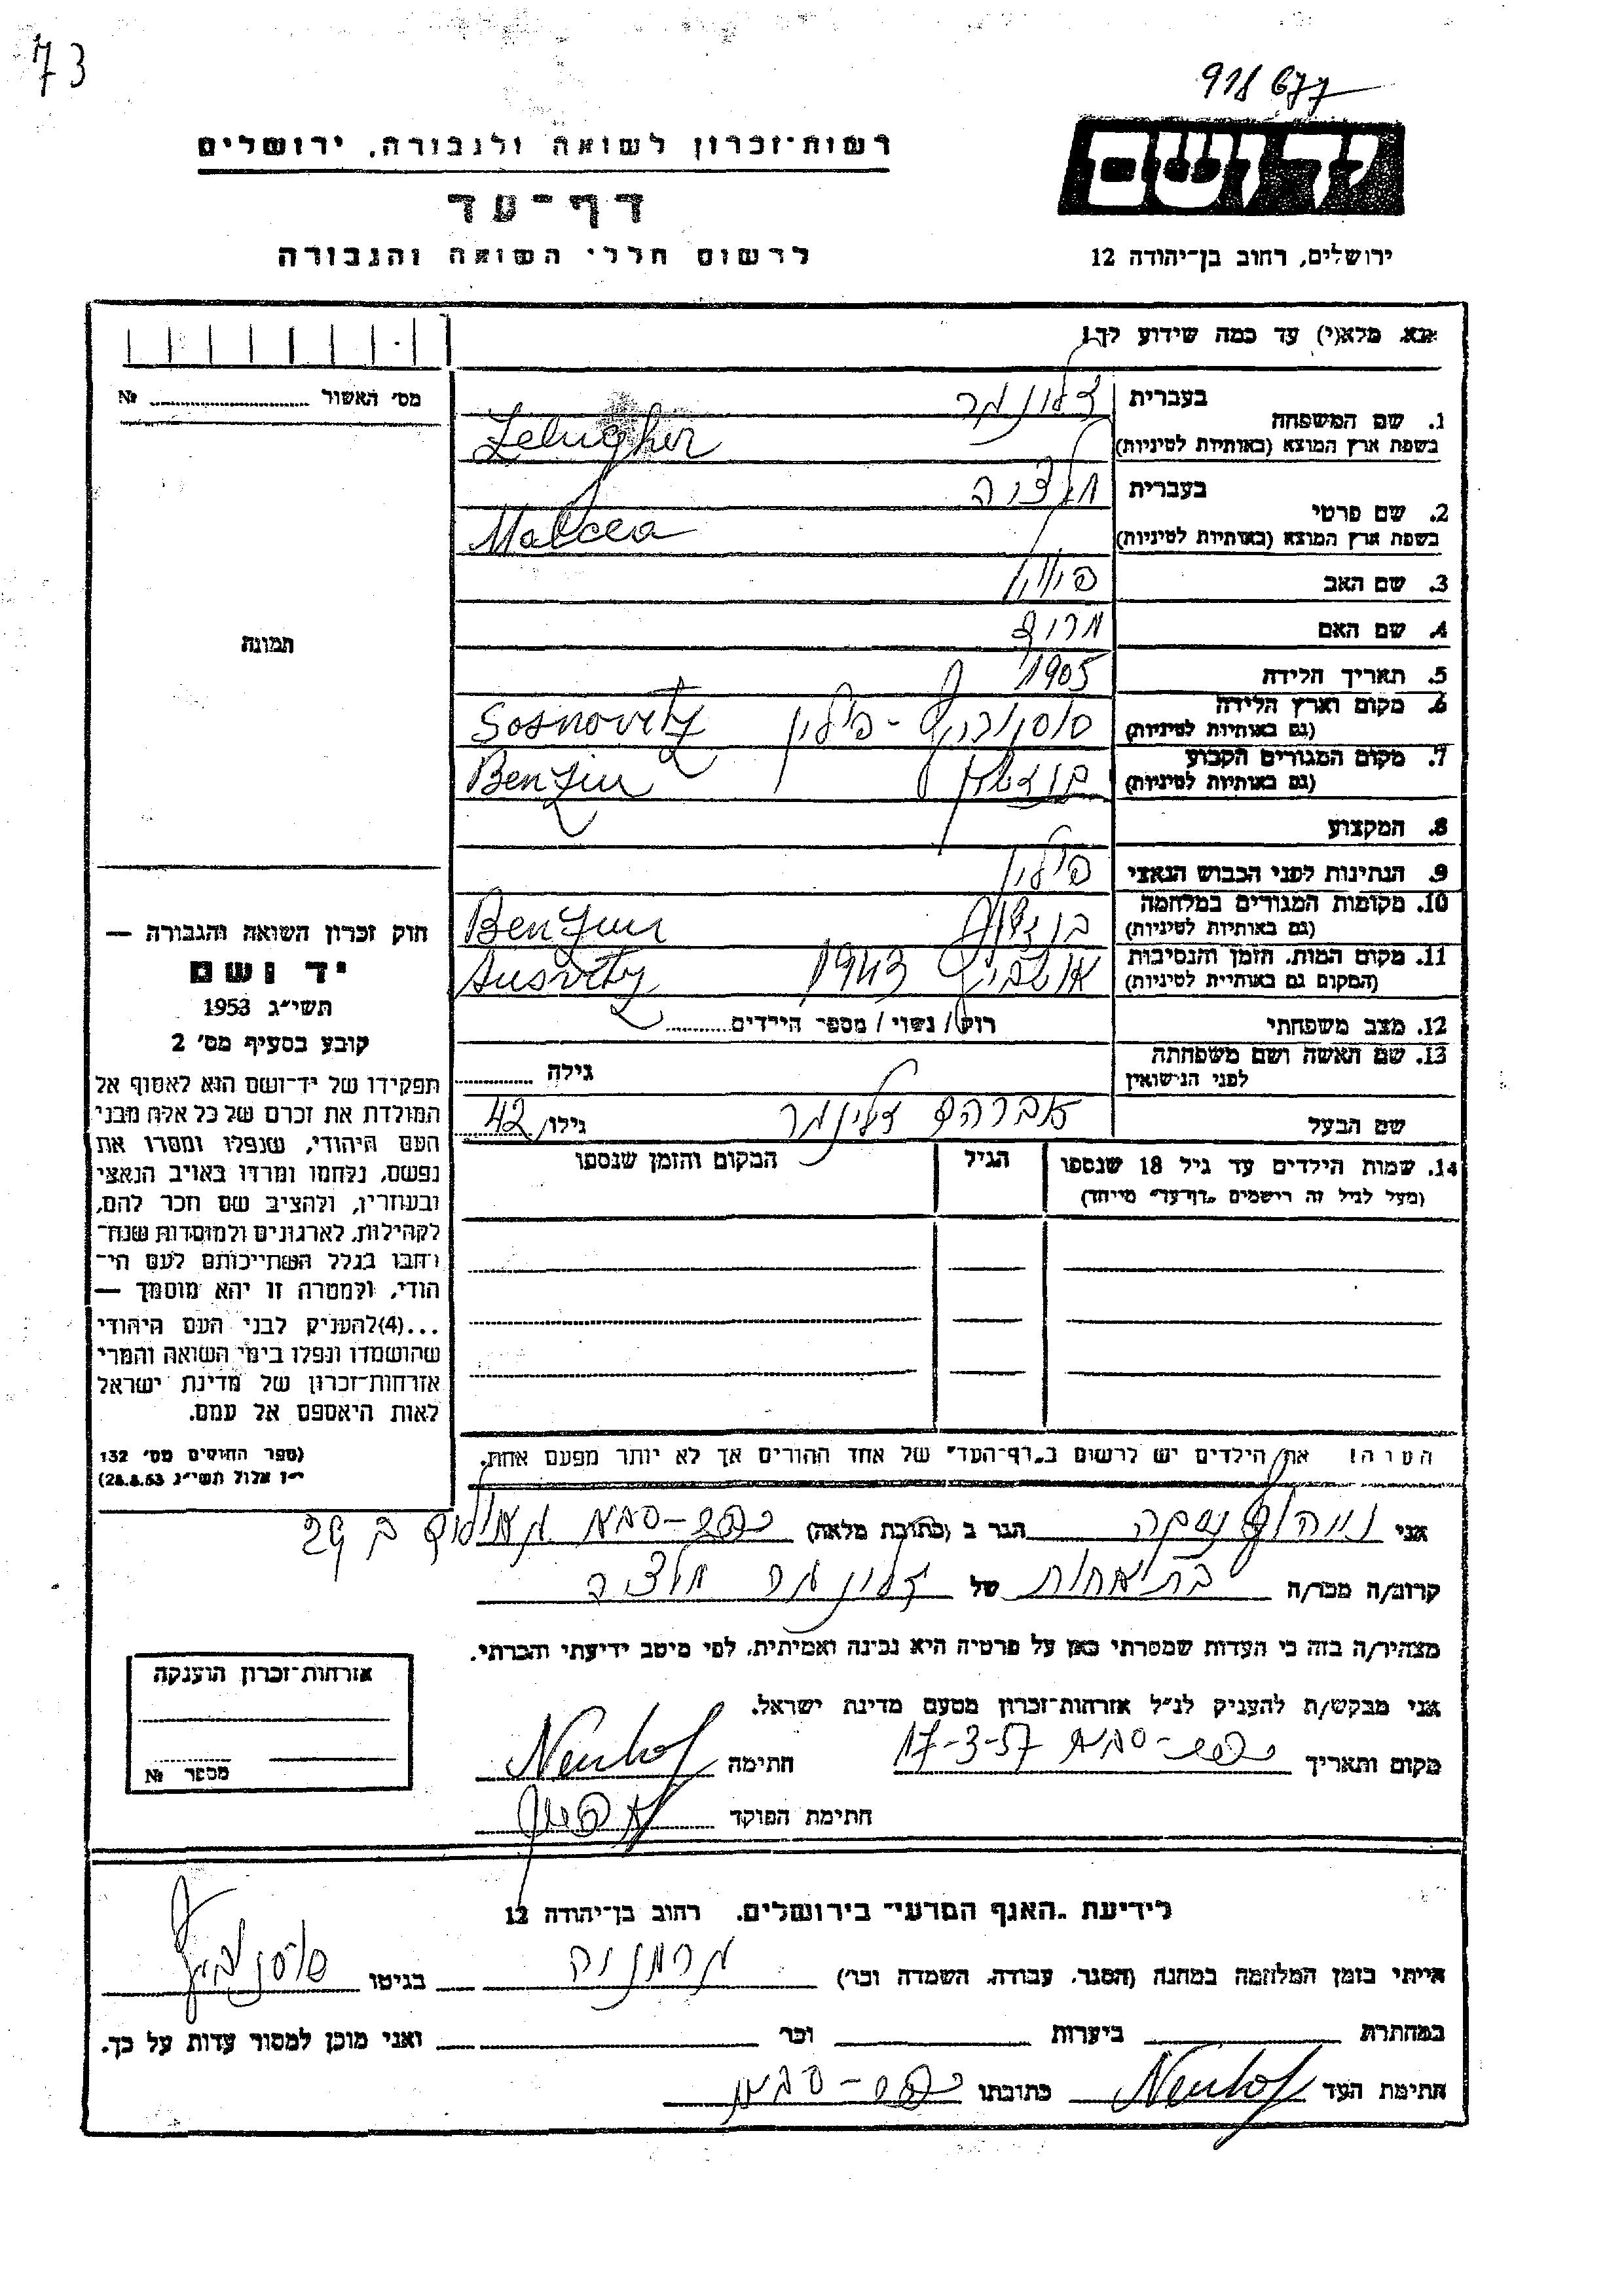 73
918677
רשות־זכרון לשואה ולגבורה, ירושלים
יד ושם
דף־עד
לרשום חללי השואה והגבורה
ירושלים, רחוב בן־יהודה 12
נא מלא(י) עד כמה שידוע לך!
מס' האשור № 
1. שם המשפחה
בעברית
בשפת ארץ המוצא (באותיות לטיניות)
Zelugher
2. שם פרטי
בעברית
בשפת ארץ המוצא (באותיות לטיניות)
Malcea
3. שם האב
4. שם האם
5. תאריך הלידה 1905
6. מקום וארץ הלידה
(גם באותיות לטיניות)
סוסנוביץ - פולין Sosnovitz
7. מקום המגורים הקבוע
(גם באותיות לטיניות)
Benzin
8. המקצוע
9. הנתינות לפני הכבוש הנאצי פולין
10. מקומות המגורים במלחמה
(גם באותיות לטיניות)
Benzin
11. מקום המות, הזמן והנסיבות
(המקום גם באותיות לטיניות)
אושביץ 1943 Ausvitz
12. מצב משפחתי רווק / נשוי / מספר הילדים
13. שם האשה ושם משפחתה
לפני הנישואין
גילה
שם הבעל אברהם גילו 42
14. שמות הילדים עד גיל 18 שנספו
(מעל לגיל זה רישמים "דף־עד" מייחד)
הגיל
המקום והזמן שנספו
תמונה
חוק זכרון השואה והגבורה —
יד ושם
תשי"ג 1953
קובע בסעיף מס' 2
תפקידו של יד־ושם הוא לאסוף אל
המולדת את זכרם של כל אלה מבני
העם היהודי, שנפלו ומסרו את
נפשם, נלחמו ומרדו באויב הנאצי
ובעוזריו, ולהציב שם וזכר להם,
לקהילות, לארגונים ולמוסדות שנח־
רחבו בגלל השתייכותם לעם הי־
הודי, ולמטרה זו יהא מוסמך —
...(4) להעניק לבני העם היהודי
שהושמדו ונפלו בימי השואה והמרי
אזרחות־זכרון של מדינת ישראל
לאות היאספם אל עמם.
(ספר החוקים מס' 132
י"ז אלול תשי"ג 28.8.53)
הערה! את הילדים יש לרשום ב"דף־העד" של אחד ההורים אך לא יותר מפעם אחת.
אני הגר ב (כתובת מלאה) כפר-סבא
קרוב/ה מכר/ה של
מצהיר/ה בזה כי העדות שמסרתי כאן על פרטיה היא נכונה ואמיתית, לפי מיטב ידיעתי והכרתי.
אני מבקש/ת להעניק לנ"ל אזרחות־זכרון מטעם מדינת ישראל.
מקום ותאריך כפר-סבא 17-3-57 חתימה Neuhof
חתימת הפוקד
אזרחות־זכרון הוענקה
מספר №
לידיעת "האגף המדעי" בירושלים. רחוב בן־יהודה 12
הייתי בזמן המלחמה במחנה (הסגר, עבודה, השמדה וכו') בגיטו סוסנוביץ
במחתרת ביערות וכו' ואני מוכן למסור עדות על כך.
חתימת העד Neuhof כתובתו כפר-סבא